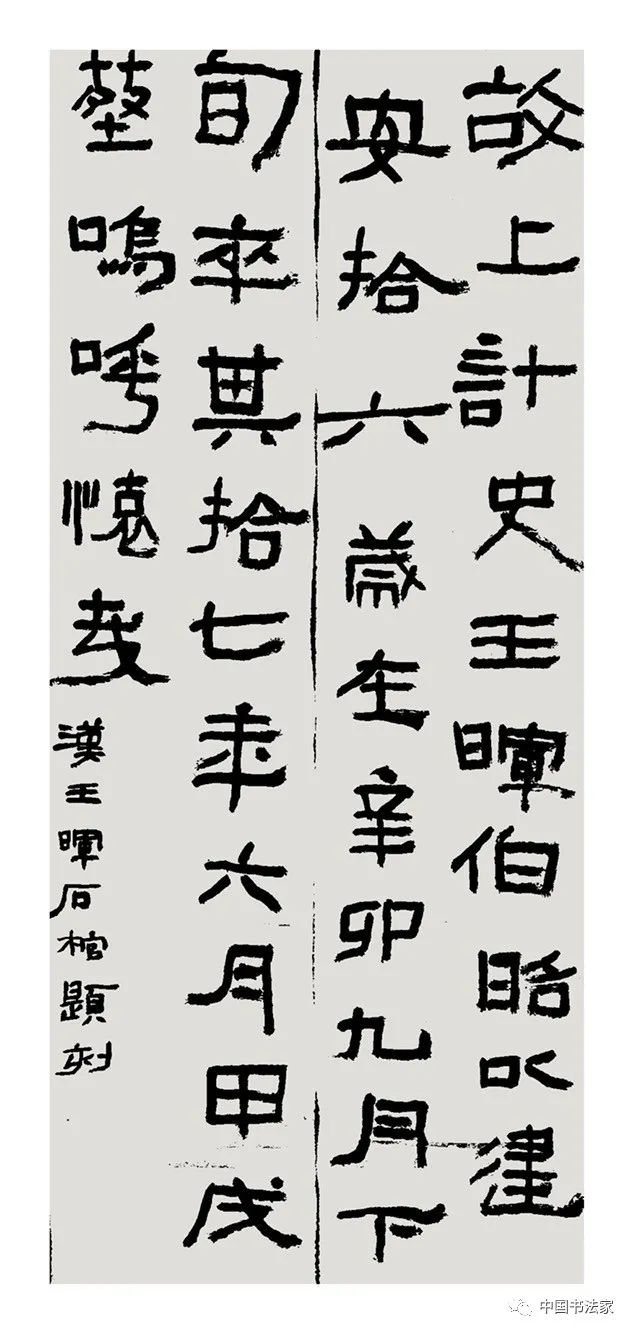 故上計史王暉伯昭以建
安拾六歲在辛卯九月下
旬卒其拾七年六月甲戌
葬嗚呼懷哉
漢王暉石棺題刻
中国书法家